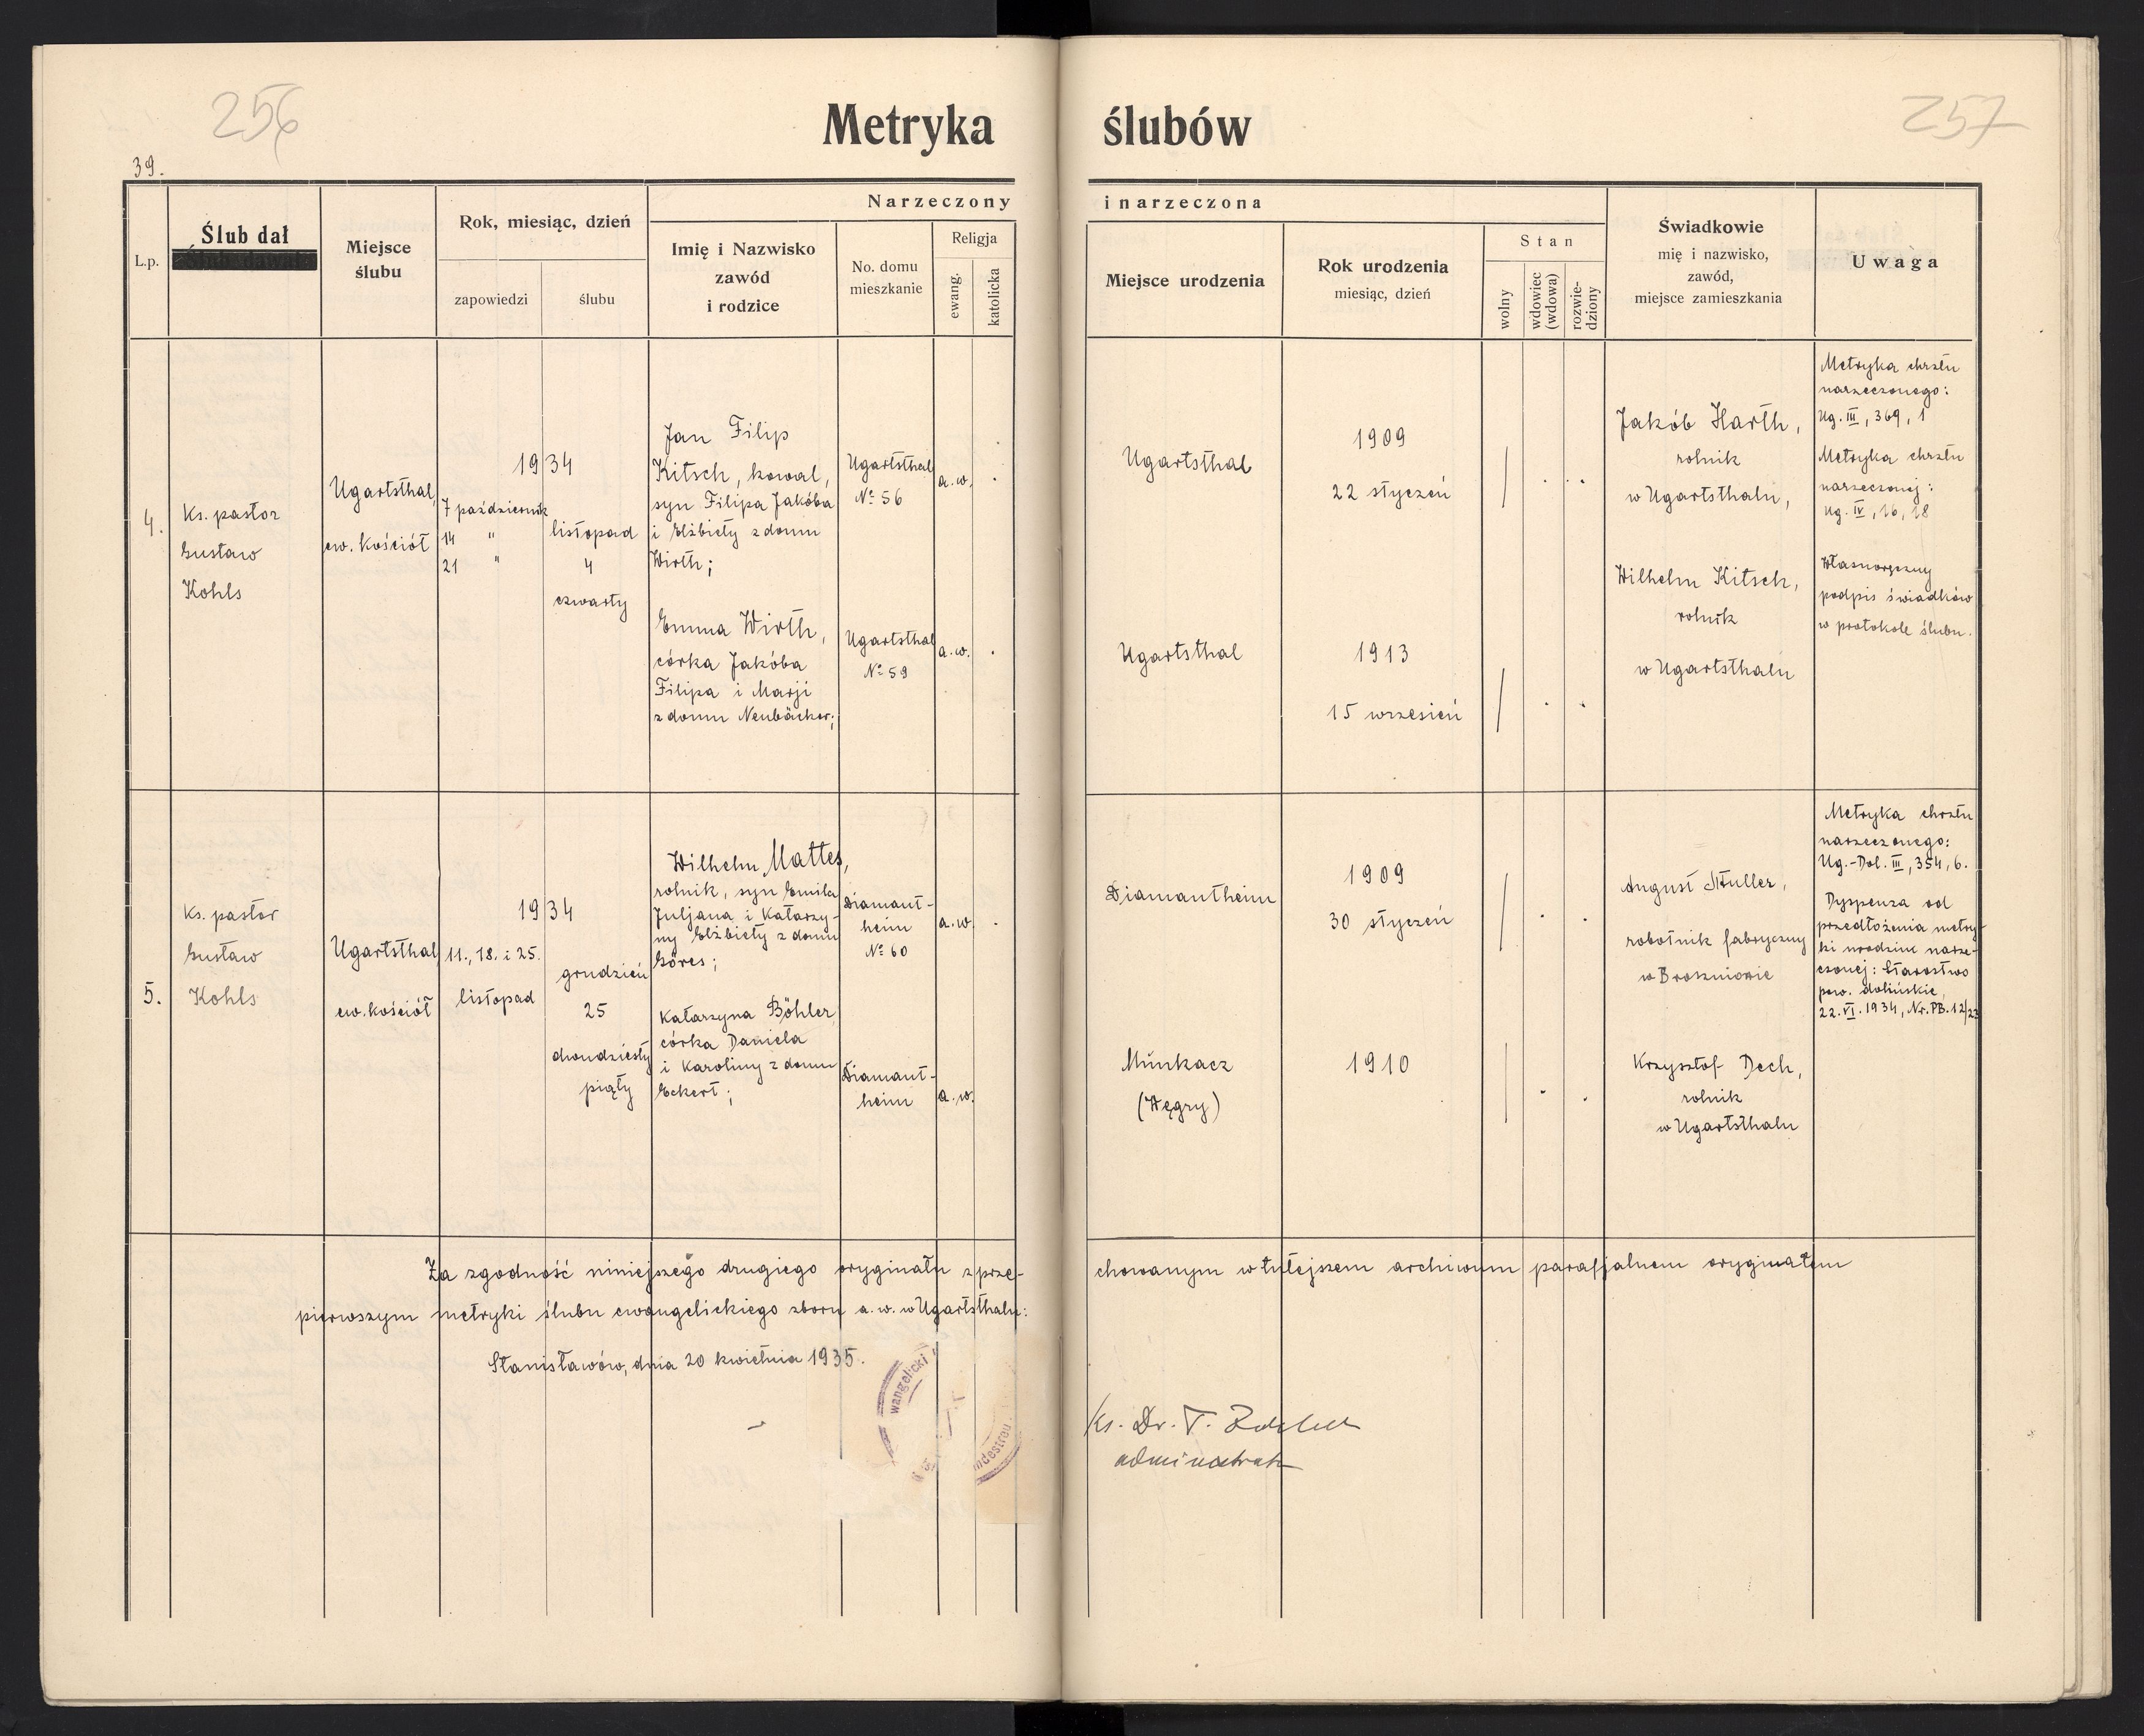 256
257
Metryka ślubów
39.
L.p.
Ślub dał
Miejsce
ślubu
Rok, miesiąc, dzień
zapowiedzi
ślubu
Narzeczony i narzeczona
Imię i Nazwisko
zawód
i rodzice
No. domu
mieszkanie
Religja
ewang.
katolicka
Miejsce urodzenia
Rok urodzenia
miesiąc, dzień
Stan
wolny
wdowiec
(wdowa)
rozwie-
dziony
Świadkowie
mię i nazwisko,
zawód,
miejsce zamieszkania
Uwaga
4.
Ks. pastor
Gustaw
Kohls
Ugartsthal,
ew. kościół
1934
7 październik
14 "
21 "
listopad
4
czwarty
Jan Filip
Kitsch, kowal,
syn Filipa Jakóba
i Elżbiety z domu
Wirth;
Ugartsthal
№ 56
a.w.
Emma Wirth,
córka Jakóba
Filipa i Marji
z domu Neubäcker;
Ugartsthal
№ 59
a.w.
Ugartsthal
1909
22 styczeń
Ugartsthal
1913
15 wrzesień
Jakób Harth,
rolnik
w Ugartsthalu,
Wilhelm Kitsch,
rolnik
w Ugartsthalu
Metryka chrztu
narzeczonego:
Ug. III, 369, 1
Metryka chrztu
narzeczonej:
Ug. IV, 16, 18
Własnoręczny
podpis świadków
w protokole ślubu.
5.
Ks. pastor
Gustaw
Kohls
Ugartsthal,
ew. kościół
1934
11., 18. i 25.
listopad
grudzień
25
dwudziesty
piąty
Wilhelm Mattes,
rolnik, syn Emila
Juljana i Katarzy-
ny Elżbiety z domu
Göres;
Diamant-
heim
№ 60
a.w.
Katarzyna Böhler
córka Daniela
i Karoliny z domu
Eckert;
Diamant-
heim
a.w.
Diamantheim
1909
30 styczeń
Munkacz
(Węgry)
1910
August Müller,
robotnik fabryczny
w Broszniowie
Krzysztof Dech,
rolnik
w Ugartsthalu
Metryka chrztu
narzeczonego:
Ug.-Dol. III, 354, 6.
Dyspenza od
przedłożenia metry-
ki urodzin narze-
czonej: Starostwo
pow. dolińskie,
22. VI. 1934, Nr. PB. 12/23
Za zgodność niniejszego drugiego oryginału z prze- chowanym w tutejszem archiwum parafjalnem oryginałem
pierwszym metryki ślubu ewangelickiego zboru a. w. w Ugartsthalu:
Stanisławów, dnia 20 kwietnia 1935.
wangelicki
Ks. Dr. T. Zöckler
administrator